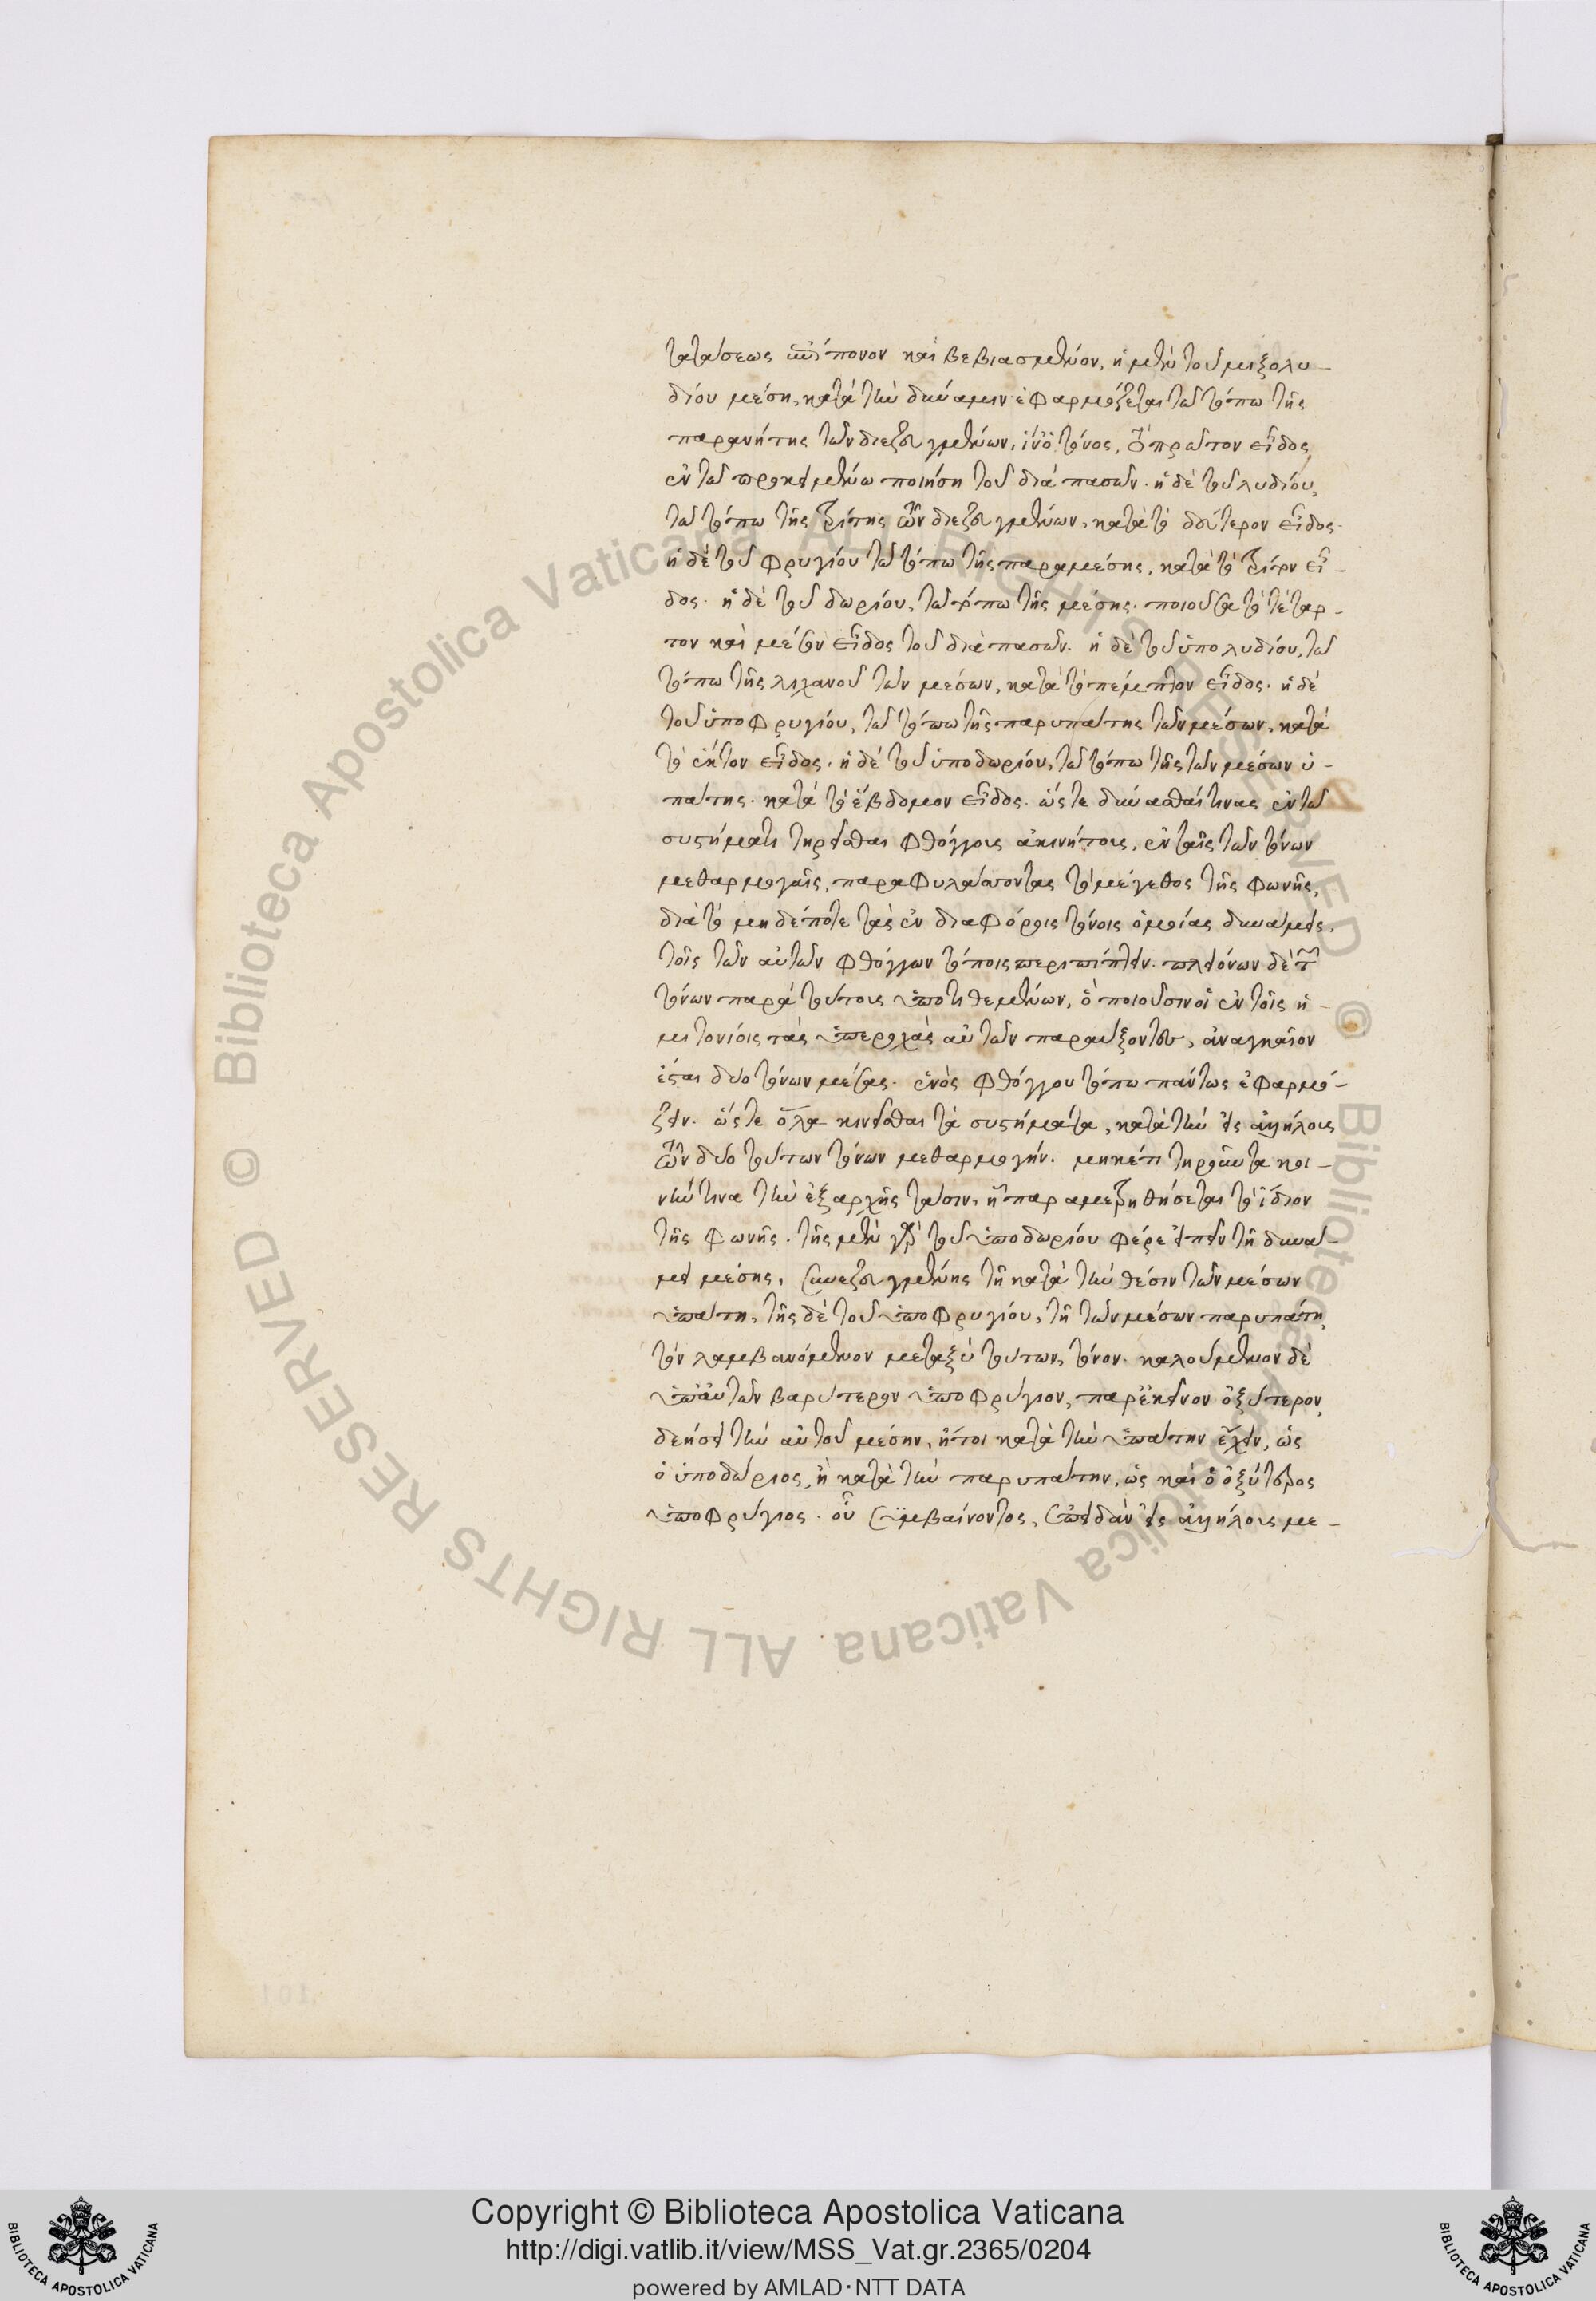 τατάσεως ἐπίπονον καὶ βεβιασμένον, ἡ μὲν τοῦ μιξολυ-
δίου μέση, κατὰ τὴν δύναμιν ἐφαρμόζεται τῶ τόπω τῆς
παρανήτης τῶν διεζευγμένων, ἵν' ὁ τόνος, τὸ πρῶτον εἶδος
ἐν τῶ προκειμένω ποιήση τοῦ διὰ πασῶν. ἡ δὲ τοῦ λυδίου,
τῶ τόπω τῆς τρίτης τῶν διεζευγμένων, κατὰ τὸ δεύτερον εἶδος.
ἡ δὲ τοῦ φρυγίου τῶ τόπω τῆς παραμέσης, κατὰ τὸ τρίτον εἶ-
δος. ἡ δὲ τοῦ δωρίου, τῶ τόπω τῆς μέσης. ποιοῦσα τὸ τέταρ-
τον καὶ μέσον εἶδος τοῦ διὰ πασῶν. ἡ δὲ τοῦ ὑπολυδίου, τῶ
τόπω τῆς λιχανοῦ τῶν μέσων, κατὰ τὸ πέμπτον εἶδος. ἡ δὲ
τοῦ ὑποφρυγίου, τῶ τόπω τῆς παρυπάτης τῶν μέσων, κατὰ
τὸ ἕκτον εἶδος. ἡ δὲ τοῦ ὑποδωρίου, τῶ τόπω τῆς τῶν μέσων ὑ-
πάτης. κατὰ τὸ ἕβδομον εἶδος. ὥστε δύνασθαί τινας ἐν τῶ
συστήματι τηρεῖσθαι φθόγγους ἀκινήτους, ἐν ταῖς τῶν τόνων
μεθαρμογαῖς, παραφυλάττοντας τὸ μέγεθος τῆς φωνῆς,
διὰ τὸ μηδέποτε τὰς ἐν διαφόροις τόνοις ὁμοίας δυνάμεις,
τοῖς τῶν αὐτῶν φθόγγων τόποις περιπίπτειν. πλειόνων δὲ τῶν
τόνων παρὰ τούτους ὑποτιθεμένων, ὃ ποιοῦσιν οἱ ἐν τοῖς ἡ-
μιτονίοις τὰς ὑπεροχὰς αὐτῶν παραύξοντες, ἀναγκαῖον
ἔσται δύο τόνων μέσας. ἑνὸς φθόγγου τόπω πάντως ἐφαρμό-
ζειν. ὥστε ὅλα κινεῖσθαι τὰ συστήματα, κατὰ τὴν εἰς ἀλλήλους
τῶν δύο τούτων τόνων μεθαρμογήν. μηκέτι τηροῦντα κοι-
νήν τινα τὴν ἐξαρχῆς τάσιν, ἧ παραμετρηθήσεται τὸ ἴδιον
τῆς φωνῆς. τῆς μὲν γὰρ τοῦ ὑποδωρίου φέρε εἰπεῖν τῆ δυνά-
μει μέσης, συνεζευγμένης τῆ κατὰ τὴν θέσιν τῶν μέσων
ὑπάτη, τῆς δὲ τοῦ ὑποφρυγίου, τῆ τῶν μέσων παρυπάτη,
τὸν λαμβανόμενον μεταξὺ τούτων, τόνον. καλούμενον δὲ
ὑπ' αὐτῶν βαρύτερον ὑποφρύγιον, παρ' ἐκεῖνον ὀξύτερον,
δεήσει τὴν αὐτοῦ μέσην, ἤτοι κατὰ τὴν ὑπάτην ἔχειν, ὡς
ὁ ὑποδώριος, ἢ κατὰ τὴν παρυπάτην, ὡς καὶ ὁ ὀξύτερος
ὑποφρύγιος. οὗ συμβαίνοντος, ἐπειδὰν εἰς ἀλλήλους με-
Copyright © Biblioteca Apostolica Vaticana
http://digi.vatlib.it/view/MSS_Vat.gr.2365/0204
powered by AMLAD·NTT DATA
© Biblioteca Apostolica Vaticana ALL RIGHTS RESERVED © Biblioteca Apostolica Vaticana ALL RIGHTS RESERVED
BIBLIOTECA APOSTOLICA VATICANA
BIBLIOTECA APOSTOLICA VATICANA